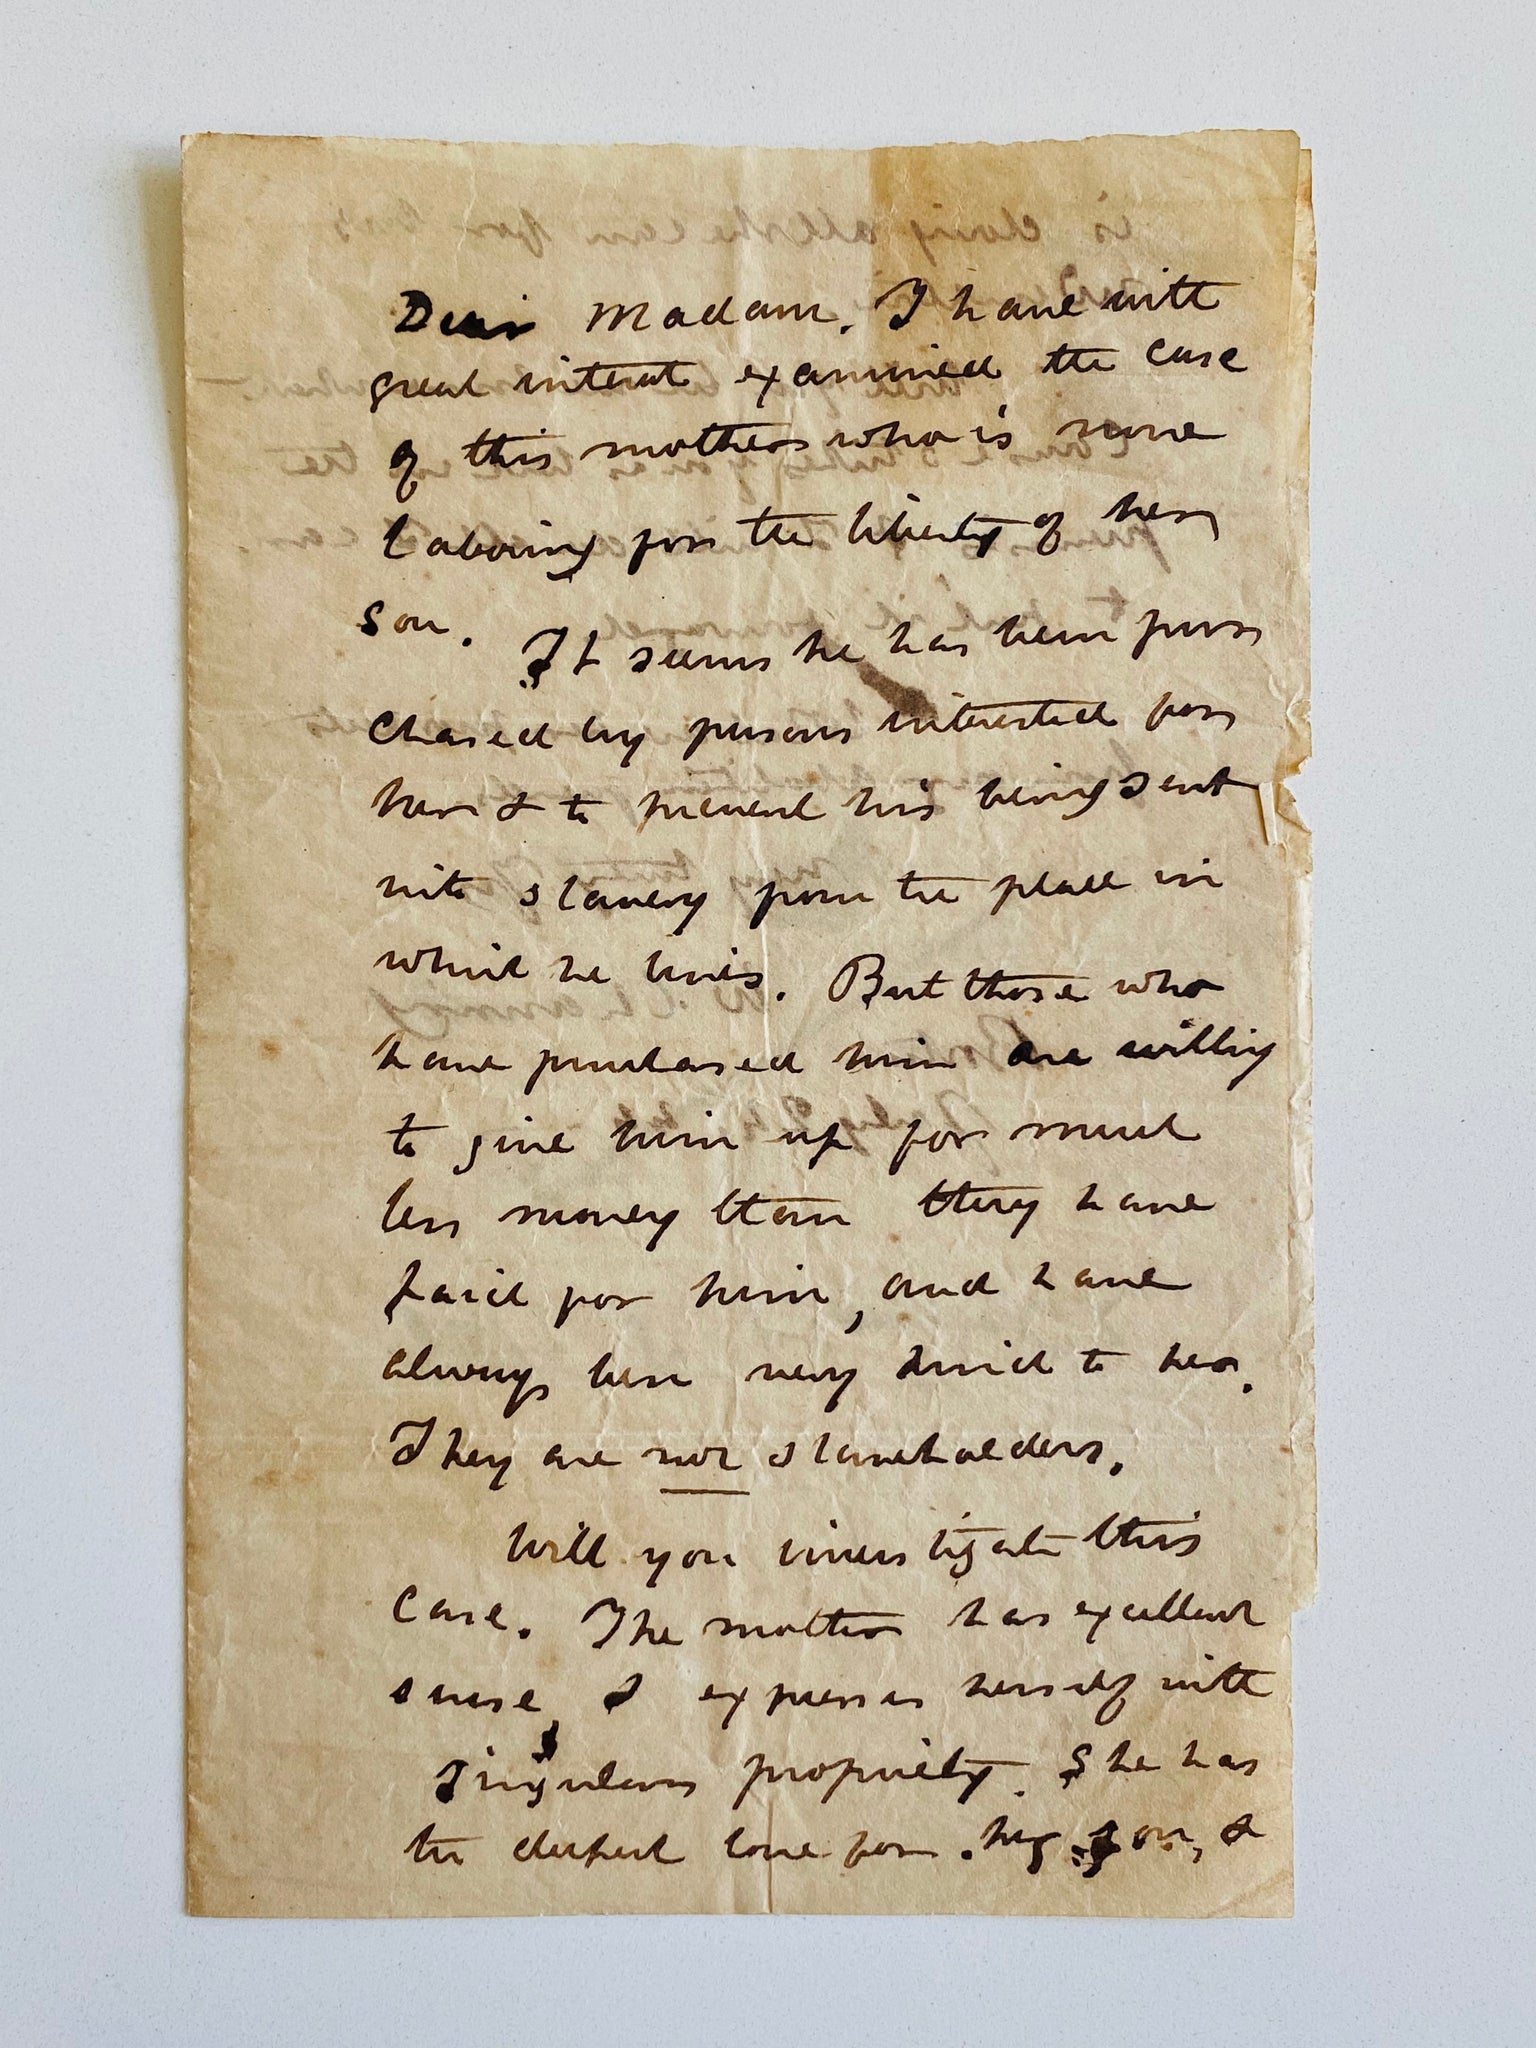 Dear Madam. I have with
great interest examined the case
of this mother who is now
laboring for the liberty of her
son. It seems he has been pur
chased by persons interested for
her & to prevent his being sent
into slavery from the place in
which he lives. But those who
have purchased him are willing
to give him up for much
less money than they have
paid for him, and have
always been very kind to her.
They are not slaveholders.
Will you investigate this
case. The mother has excellent
sense, & expresses herself with
singular propriety. She has
the deepest love for her son, &